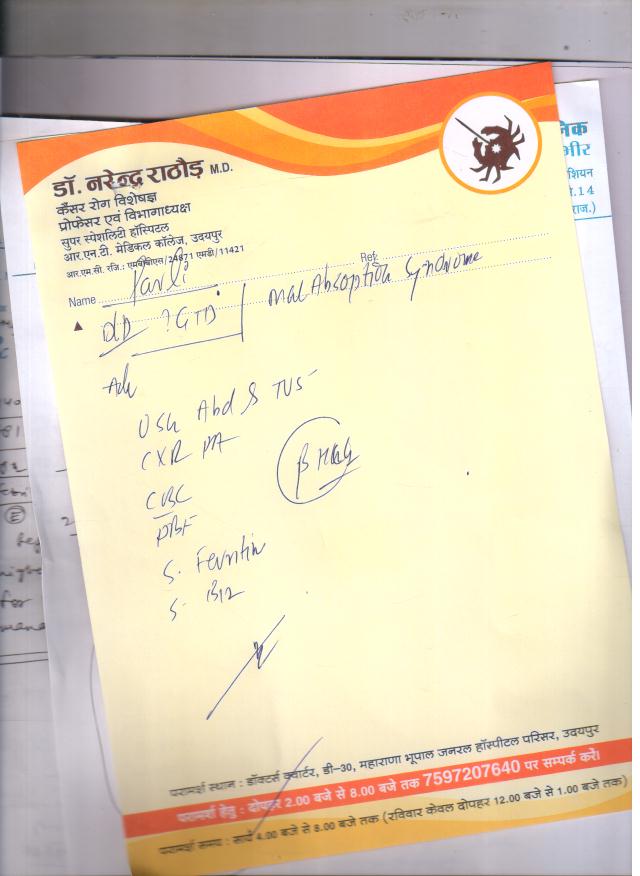 डॉ. नरेन्द्र राठौड़ M.D.
कैंसर रोग विशेषज्ञ
प्रोफेसर एवं विभागाध्यक्ष
सुपर स्पेशलिटी हॉस्पिटल
आर.एन.टी. मेडिकल कॉलेज, उदयपुर
आर.एम.सी. रजि.: एमबीबीएस/24871 एमडी/11421
Name Ref.
DD ? GTD Mal Absoption Syndrome
Adv
USG Abd & TVS
CXR PA
β HCG
CBC
PBF
S. Ferritin
S. B12
परामर्श स्थान : डॉक्टर्स क्वार्टर, डी-30, महाराणा भूपाल जनरल हॉस्पीटल परिसर, उदयपुर
परामर्श हेतु : दोपहर 2.00 बजे से 8.00 बजे तक 7597207640 पर सम्पर्क करें।
परामर्श समय : सायं 4.00 बजे से 8.00 बजे तक (रविवार केवल दोपहर 12.00 बजे से 1.00 बजे तक)
निक
शियन
रे.14
राज.)
for